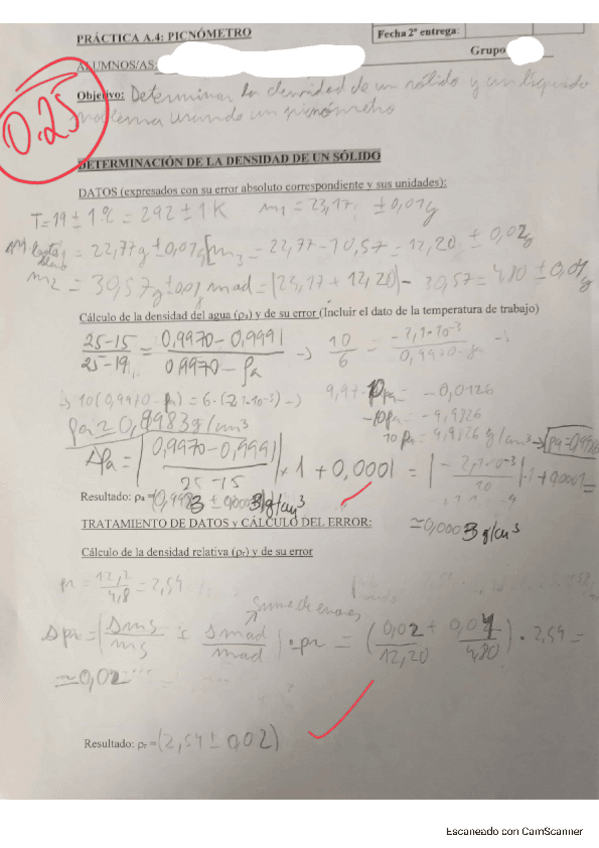 PRÁCTICA A.4: PICNÓMETRO
Fecha 2ª entrega:
ALUMNOS/AS
Grupo
0.25
Objetivo: Determinar la densidad de un sólido y un líquido
problema usando un picnómetro
DETERMINACIÓN DE LA DENSIDAD DE UN SÓLIDO
DATOS (expresados con su error absoluto correspondiente y sus unidades):
T=19 ± 1 ºC = 292 ± 1 K m1 = 23,17 ± 0,01g
= 22,77g ± 0,01g [m3 = 22,77 - 10,57 = 12,20 ± 0,02g
m2 = 30,57g ± 0,01g mad = (23,17 + 12,20) - 30,57 = 4,80 ± 0,04g
Cálculo de la densidad del agua (ρa) y de su error (Incluir el dato de la temperatura de trabajo)
25-15 / 25-19 = 0,9970 - 0,9991 / 0,9970 - ρa → 10 / 6 = -2,1·10⁻³ / 0,9970-ρa →
→ 10(0,9970 - ρa) = 6·(-2,1·10⁻³) → 9,97 - 10ρa = -0,0126
-10ρa = -9,9826
ρa ≈ 0,9983 g/cm³ 10ρa = 9,9826 g/cm³ →
Δρa = | 0,9970 - 0,9991 / 25-15 | · 1 + 0,0001 = | -2,1·10⁻³ / 10 | · 1 + 0,0001 =
Resultado: ρa = (0,9983 ± 0,0003) g/cm³
≈ 0,0003 g/cm³
TRATAMIENTO DE DATOS y CÁLCULO DEL ERROR:
Cálculo de la densidad relativa (ρr) y de su error
ρr = 12,2 / 4,8 = 2,54
Suma de errores
Δρr = | Δms / ms + Δmad / mad | · ρr = ( 0,02 / 12,20 + 0,04 / 4,80 ) · 2,54 =
≈ 0,02
Resultado: ρr = (2,54 ± 0,02)
Escaneado con CamScanner